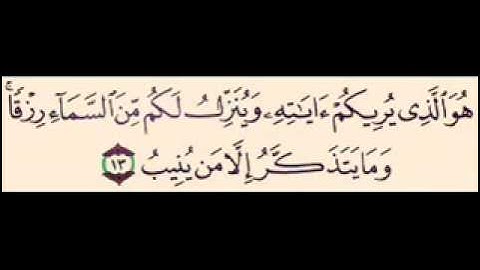 هُوَ ٱلَّذِى يُرِيكُمْ ءَايَٰتِهِۦ وَيُنَزِّلُ لَكُم مِّنَ ٱلسَّمَآءِ رِزْقًا ۚ
وَمَا يَتَذَكَّرُ إِلَّا مَن يُنِيبُ ١٣